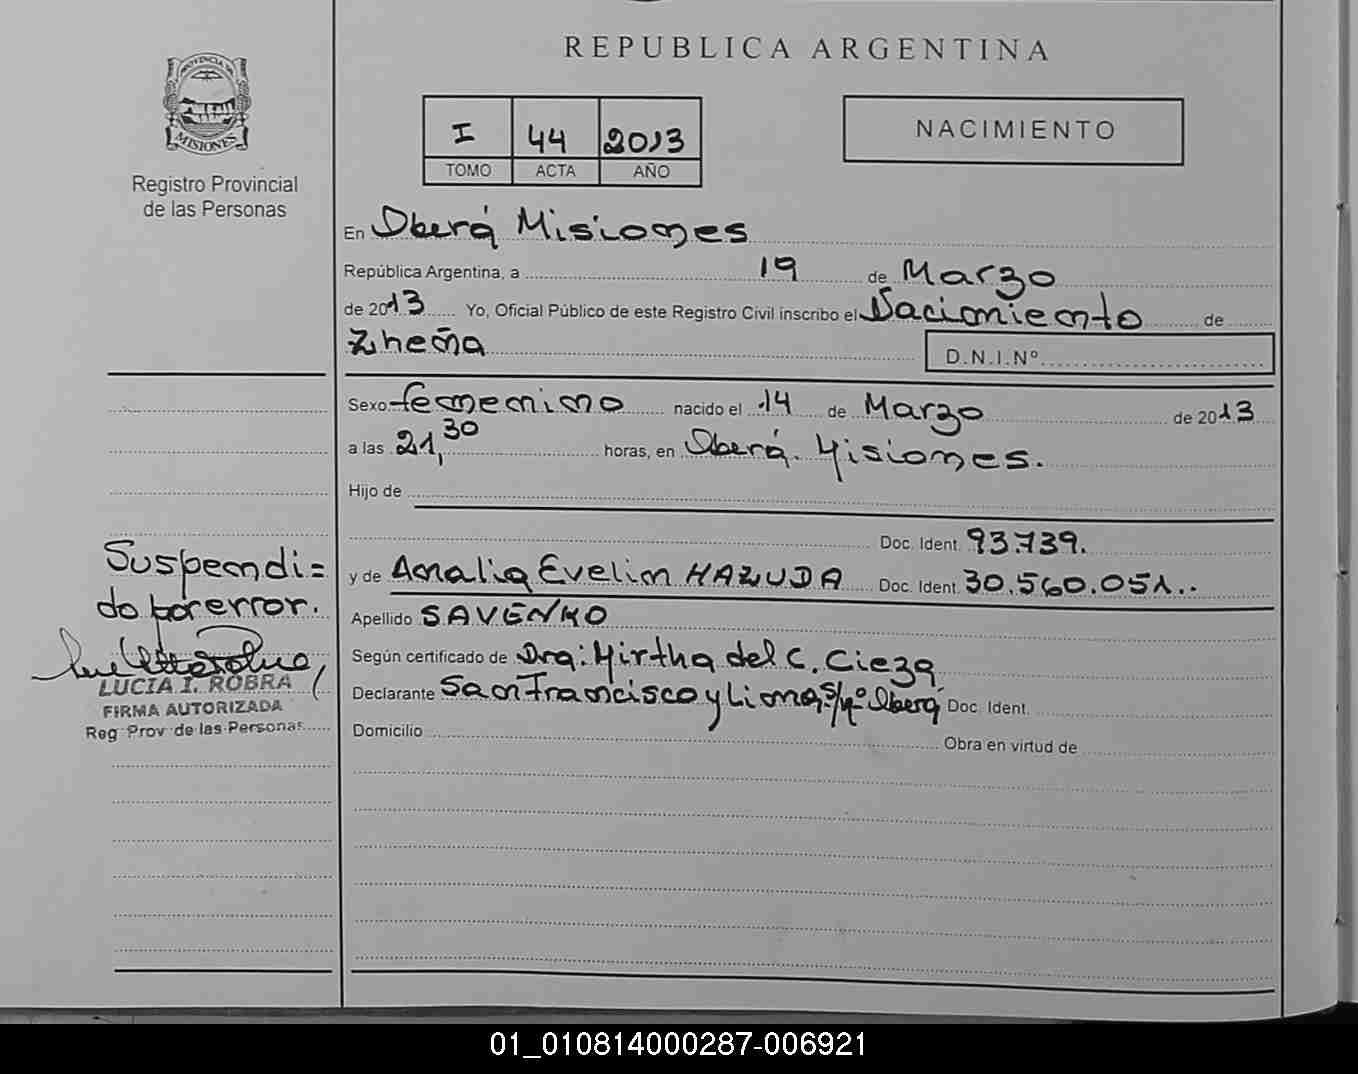 REPUBLICA ARGENTINA
PROVINCIA DE
MISIONES
Registro Provincial
de las Personas
I 44 2013
TOMO ACTA AÑO
NACIMIENTO
En Oberá Misiones
República Argentina, a 19 de Marzo
de 2013 Yo, Oficial Público de este Registro Civil inscribo el Nacimiento de
Zheña D.N.I.Nº
Sexo femenino nacido el 14 de Marzo de 2013
a las 21,30 horas, en Oberá. Misiones.
Hijo de
Doc. Ident. 93.739.
y de Amalia Evelin HAZUDA Doc. Ident. 30.560.051..
Apellido SAVENKO
Según certificado de Dra: Mirtha del C. Cieza
Declarante San Francisco y Lima s/nº Oberá Doc. Ident.
Domicilio Obra en virtud de
Suspendi=
do por error.
LUCIA I. ROBRA
FIRMA AUTORIZADA
Reg Prov de las Personas
01_010814000287-006921